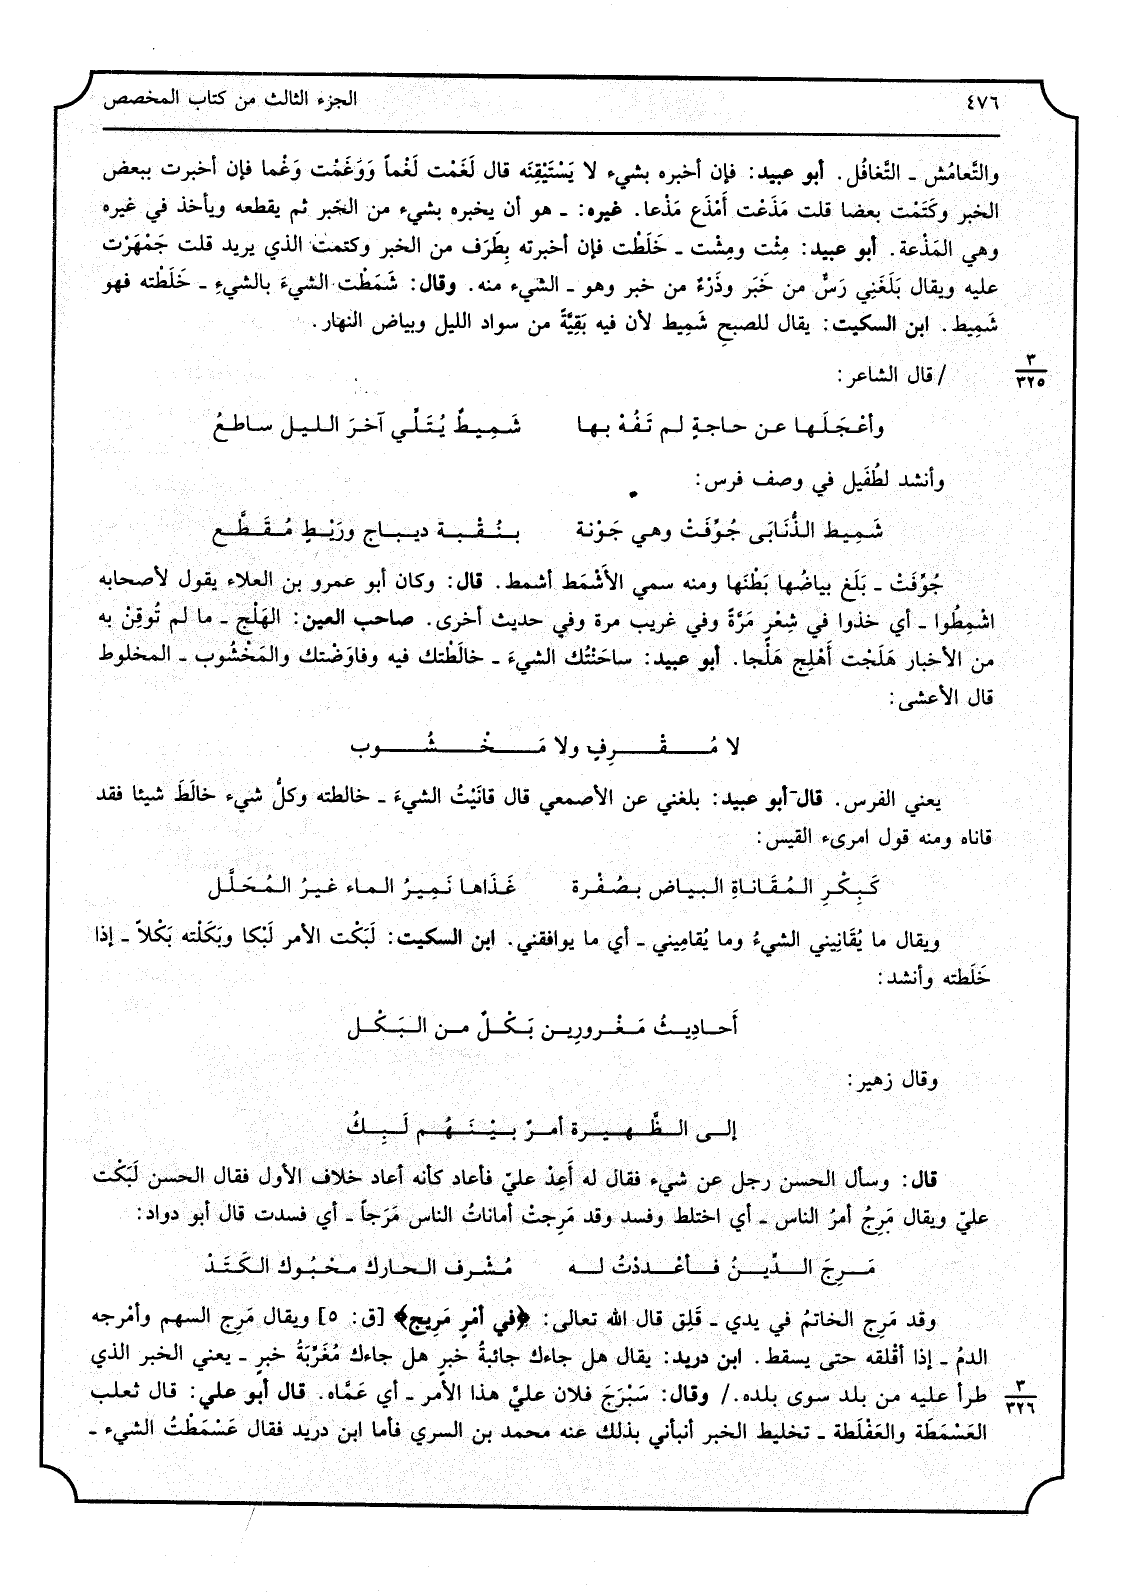 ٤٧٦ الجزء الثالث من كتاب المخصص
والتَّعامُش ـ التَّغافُل. أبو عبيد: فإن أخبره بشيء لا يَسْتَيْقِنَه قال لَغَمْت لَغْماً وَوَغَمْت وَغْما فإن أخبرت ببعض
الخبر وكَتَمْت بعضا قلت مَذَعْت أَمْذَع مَذْعا. غيره: ـ هو أن يخبره بشيء من الخَبر ثم يقطعه ويأخذ في غيره
وهي المَذْعة. أبو عبيد: مِثْت ومِشْت ـ خَلَطْت فإن أخبرته بِطَرَف من الخبر وكتمت الذي يريد قلت جَمْهَرْت
عليه ويقال بَلَغَنِي رَسٌّ من خَبَر وذَرْءٌ من خبر وهو ـ الشيء منه. وقال: شَمَطْت الشيءَ بالشيءِ ـ خَلَطْته فهو
شَمِيط. ابن السكيت: يقال للصبحِ شَمِيط لأن فيه بَقِيَّةً من سواد الليل وبياض النهار.
٣
٣٢٥
/ قال الشاعر:
وأعْجَلَها عن حاجةٍ لم تَفُهْ بها شَمِيطٌ يُتَلِّي آخرَ الليل ساطعُ
وأنشد لطُفَيل في وصف فرس:
شَمِيط الذُّنَابَى جُوِّفَتْ وهي جَوْنة بنُقْبة ديباج ورَيْطٍ مُقَطَّع
جُوِّفَتْ ـ بَلَغ بياضُها بَطْنَها ومنه سمي الأَشْمَط أشمط. قال: وكان أبو عمرو بن العلاء يقول لأصحابه
اشْمِطُوا ـ أي خذوا في شِعْرٍ مَرَّةً وفي غريب مرة وفي حديث أخرى. صاحب العين: الهَلْج ـ ما لم تُوقِنْ به
من الأخبار هَلَجْت أَهْلِج هَلْجا. أبو عبيد: ساحَنْتُك الشيءَ ـ خالَطْتك فيه وفاوَضْتك والمَخْشُوب ـ المخلوط
قال الأعشى:
لا مُقْرِفٍ ولا مَخْشُوب
يعني الفرس. قال أبو عبيد: بلغني عن الأصمعي قال قانَيْتُ الشيءَ ـ خالطته وكلُّ شيء خالَطَ شيئا فقد
قاناه ومنه قول امرىء القيس:
كَبِكْرِ المُقَاناةِ البياض بصُفْرة غَذَاها نَمِيرُ الماء غيرُ المُحَلَّل
ويقال ما يُقَانِيني الشيءُ وما يُقامِيني ـ أي ما يوافقني. ابن السكيت: لَبَكْت الأمر لَبْكا وبَكَلْته بَكْلاً ـ إذا
خَلَطته وأنشد:
أَحادِيثُ مَغْرورِين بَكْلٌ من البَكْل
وقال زهير:
إلى الظَّهِيرة أمرٌ بيْنَهُم لَبِكُ
قال: وسأل الحسن رجل عن شيء فقال له أَعِدْ عليّ فأعاد كأنه أعاد خلاف الأول فقال الحسن لَبَكْت
عليّ ويقال مَرِجُ أمرُ الناس ـ أي اختلط وفسد وقد مَرِجتْ أماناتُ الناس مَرَجاً ـ أي فسدت قال أبو دواد:
مَرِجَ الدِّينُ فأعْددْتُ له مُشْرف الحارك محْبُوك الكَتَدْ
وقد مَرِج الخاتمُ في يدي ـ قَلِق قال الله تعالى: ﴿في أمْرٍ مَرِيج﴾ [ق: ٥] ويقال مَرِج السهم وأمْرجه
الدمُ ـ إذا أقْلقه حتى يسقط. ابن دريد: يقال هل جاءك جائبةُ خبرٍ هل جاءك مُغَرِّبَةُ خبرٍ ـ يعني الخبر الذي
٣
٣٢٦
طرأ عليه من بلد سوى بلده./ وقال: سَبْرَجَ فلان عليَّ هذا الأمر ـ أي عَمَّاه. قال أبو علي: قال ثعلب
العَسْمَطَة والعَفْلَطة ـ تخليط الخبر أنبأني بذلك عنه محمد بن السري فأما ابن دريد فقال عَسْمَطْتُ الشيء ـ